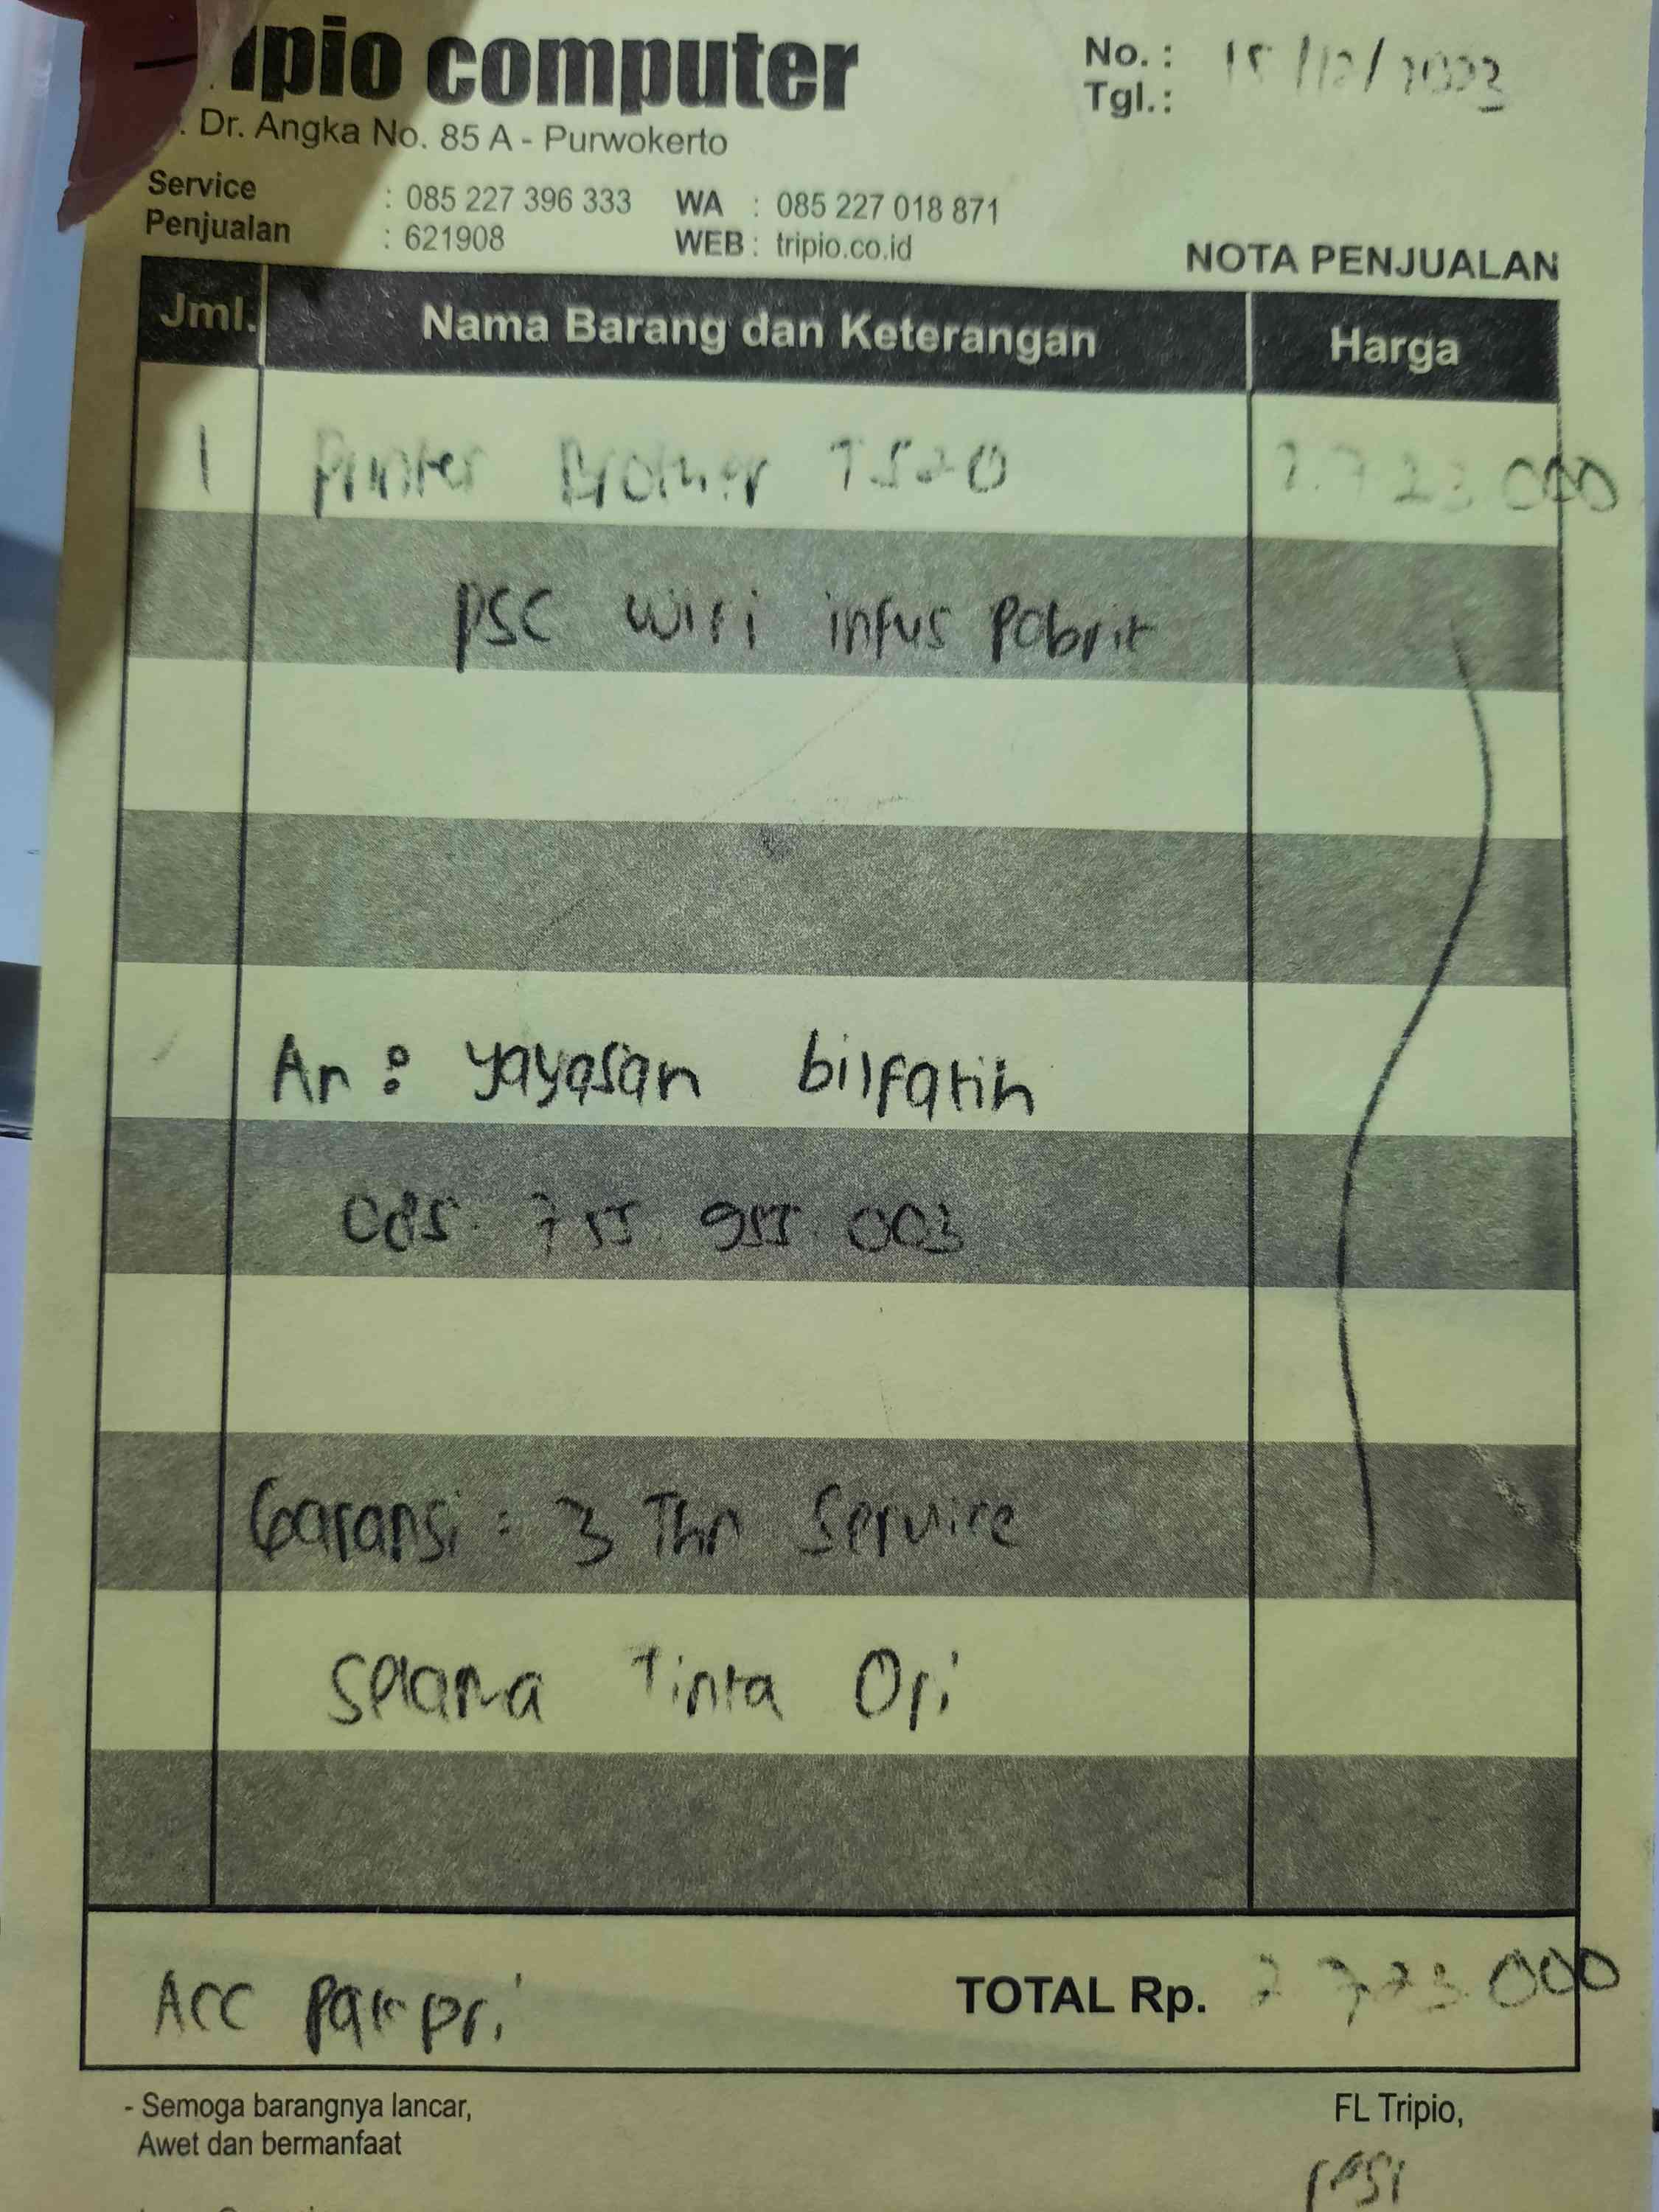 ipio computer
Dr. Angka No. 85 A - Purwokerto
No. : 15/12/2023
Tgl. :
Service : 085 227 396 333 WA : 085 227 018 871
Penjualan : 621908 WEB : tripio.co.id
NOTA PENJUALAN
Jml. Nama Barang dan Keterangan Harga
1 Printer Brother T520 2.723.000
PSC wifi infus Pabrik
An : yayasan bilfatih
085. 755 955 003
Garansi : 3 Thn Service
Selama Tinta Ori
Acc Pak pri TOTAL Rp. 2.723.000
- Semoga barangnya lancar,
Awet dan bermanfaat
FL Tripio,